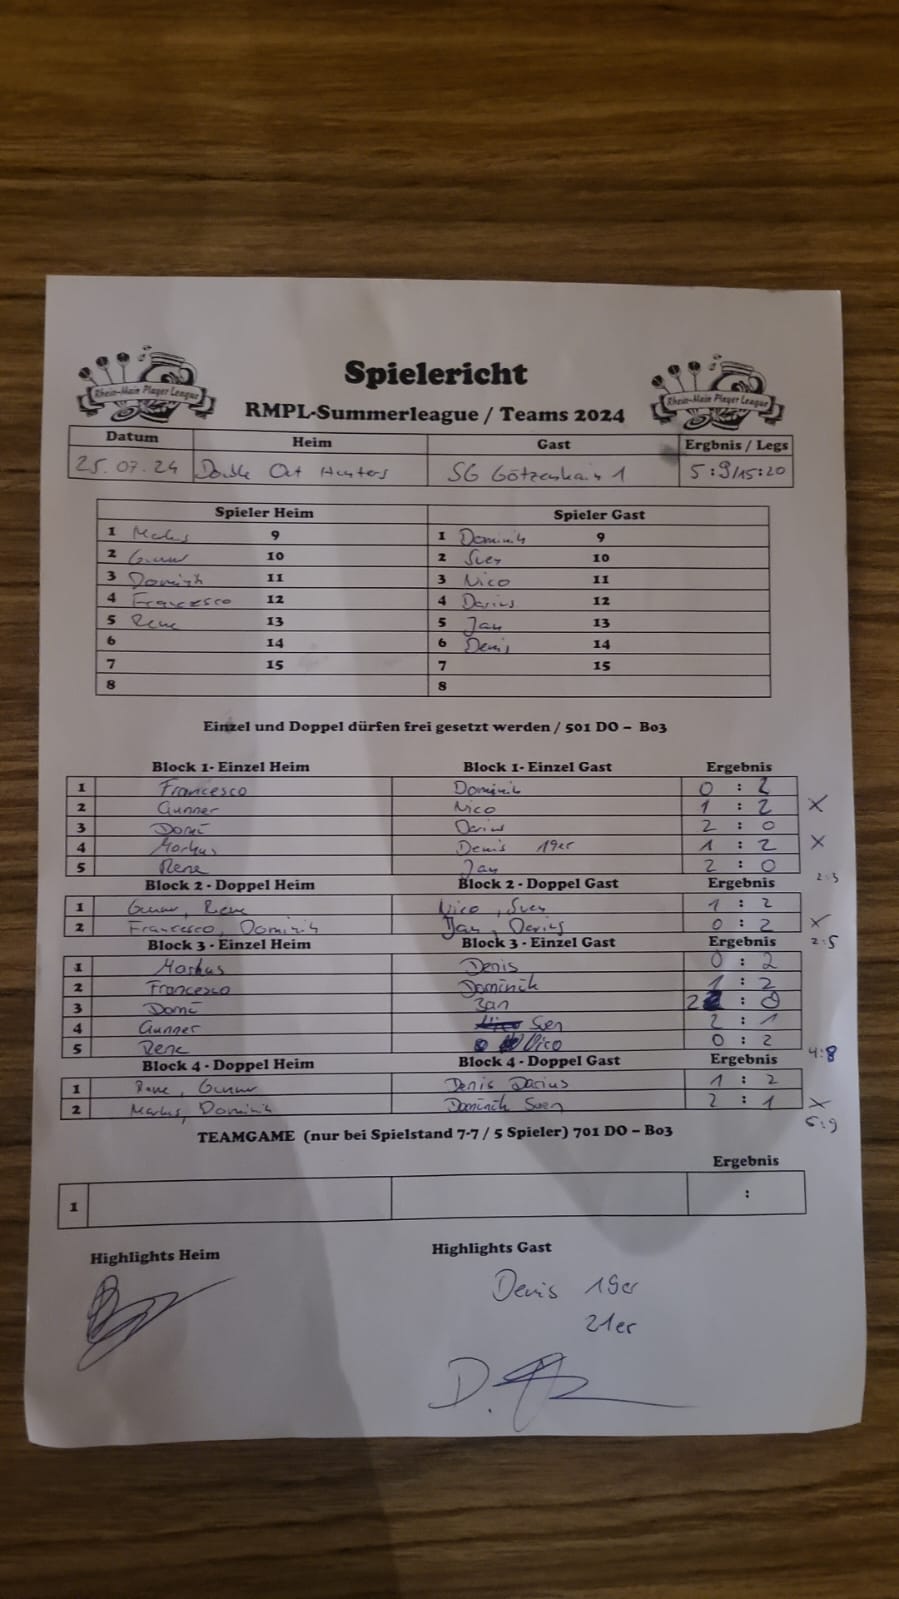 Rhein-Main Player League
Rhein-Main Player League
Spielericht
RMPL-Summerleague / Teams 2024
Datum Heim Gast Ergbnis / Legs
25.07.24 Double Out Hunters SG Götzenhain 1 5:9/15:20
Spieler Heim Spieler Gast
1 Markus 9 1 Dominik 9
2 Gunner 10 2 Sven 10
3 Dominik 11 3 Nico 11
4 Francesco 12 4 Darius 12
5 Rene 13 5 Jan 13
6 14 6 Denis 14
7 15 7 15
8 8
Einzel und Doppel dürfen frei gesetzt werden / 501 DO – Bo3
Block 1- Einzel Heim Block 1- Einzel Gast Ergebnis
1 Francesco Dominik 0 : 2
2 Gunner Nico 1 : 2 X
3 Domé Darius 2 : 0
4 Markus Denis 19er 1 : 2 X
5 Rene Jan 2 : 0
2:3
Block 2 - Doppel Heim Block 2 - Doppel Gast Ergebnis
1 Gunner, Rene Nico, Sven 1 : 2
2 Francesco, Dominik Jan, Darius 0 : 2 X
2:5
Block 3 - Einzel Heim Block 3 - Einzel Gast Ergebnis
1 Markus Denis 0 : 2
2 Francesco Dominik 1 : 2
3 Domé Jan 2 : 0
4 Gunner Sven 2 : 1
5 Rene Nico 0 : 2
4:8
Block 4 - Doppel Heim Block 4 - Doppel Gast Ergebnis
1 Rene, Gunner Denis Darius 1 : 2
2 Markus, Dominik Dominik Sven 2 : 1 X
5:9
TEAMGAME (nur bei Spielstand 7-7 / 5 Spieler) 701 DO – Bo3
Ergebnis
1 :
Highlights Heim Highlights Gast
Denis 19er
21er